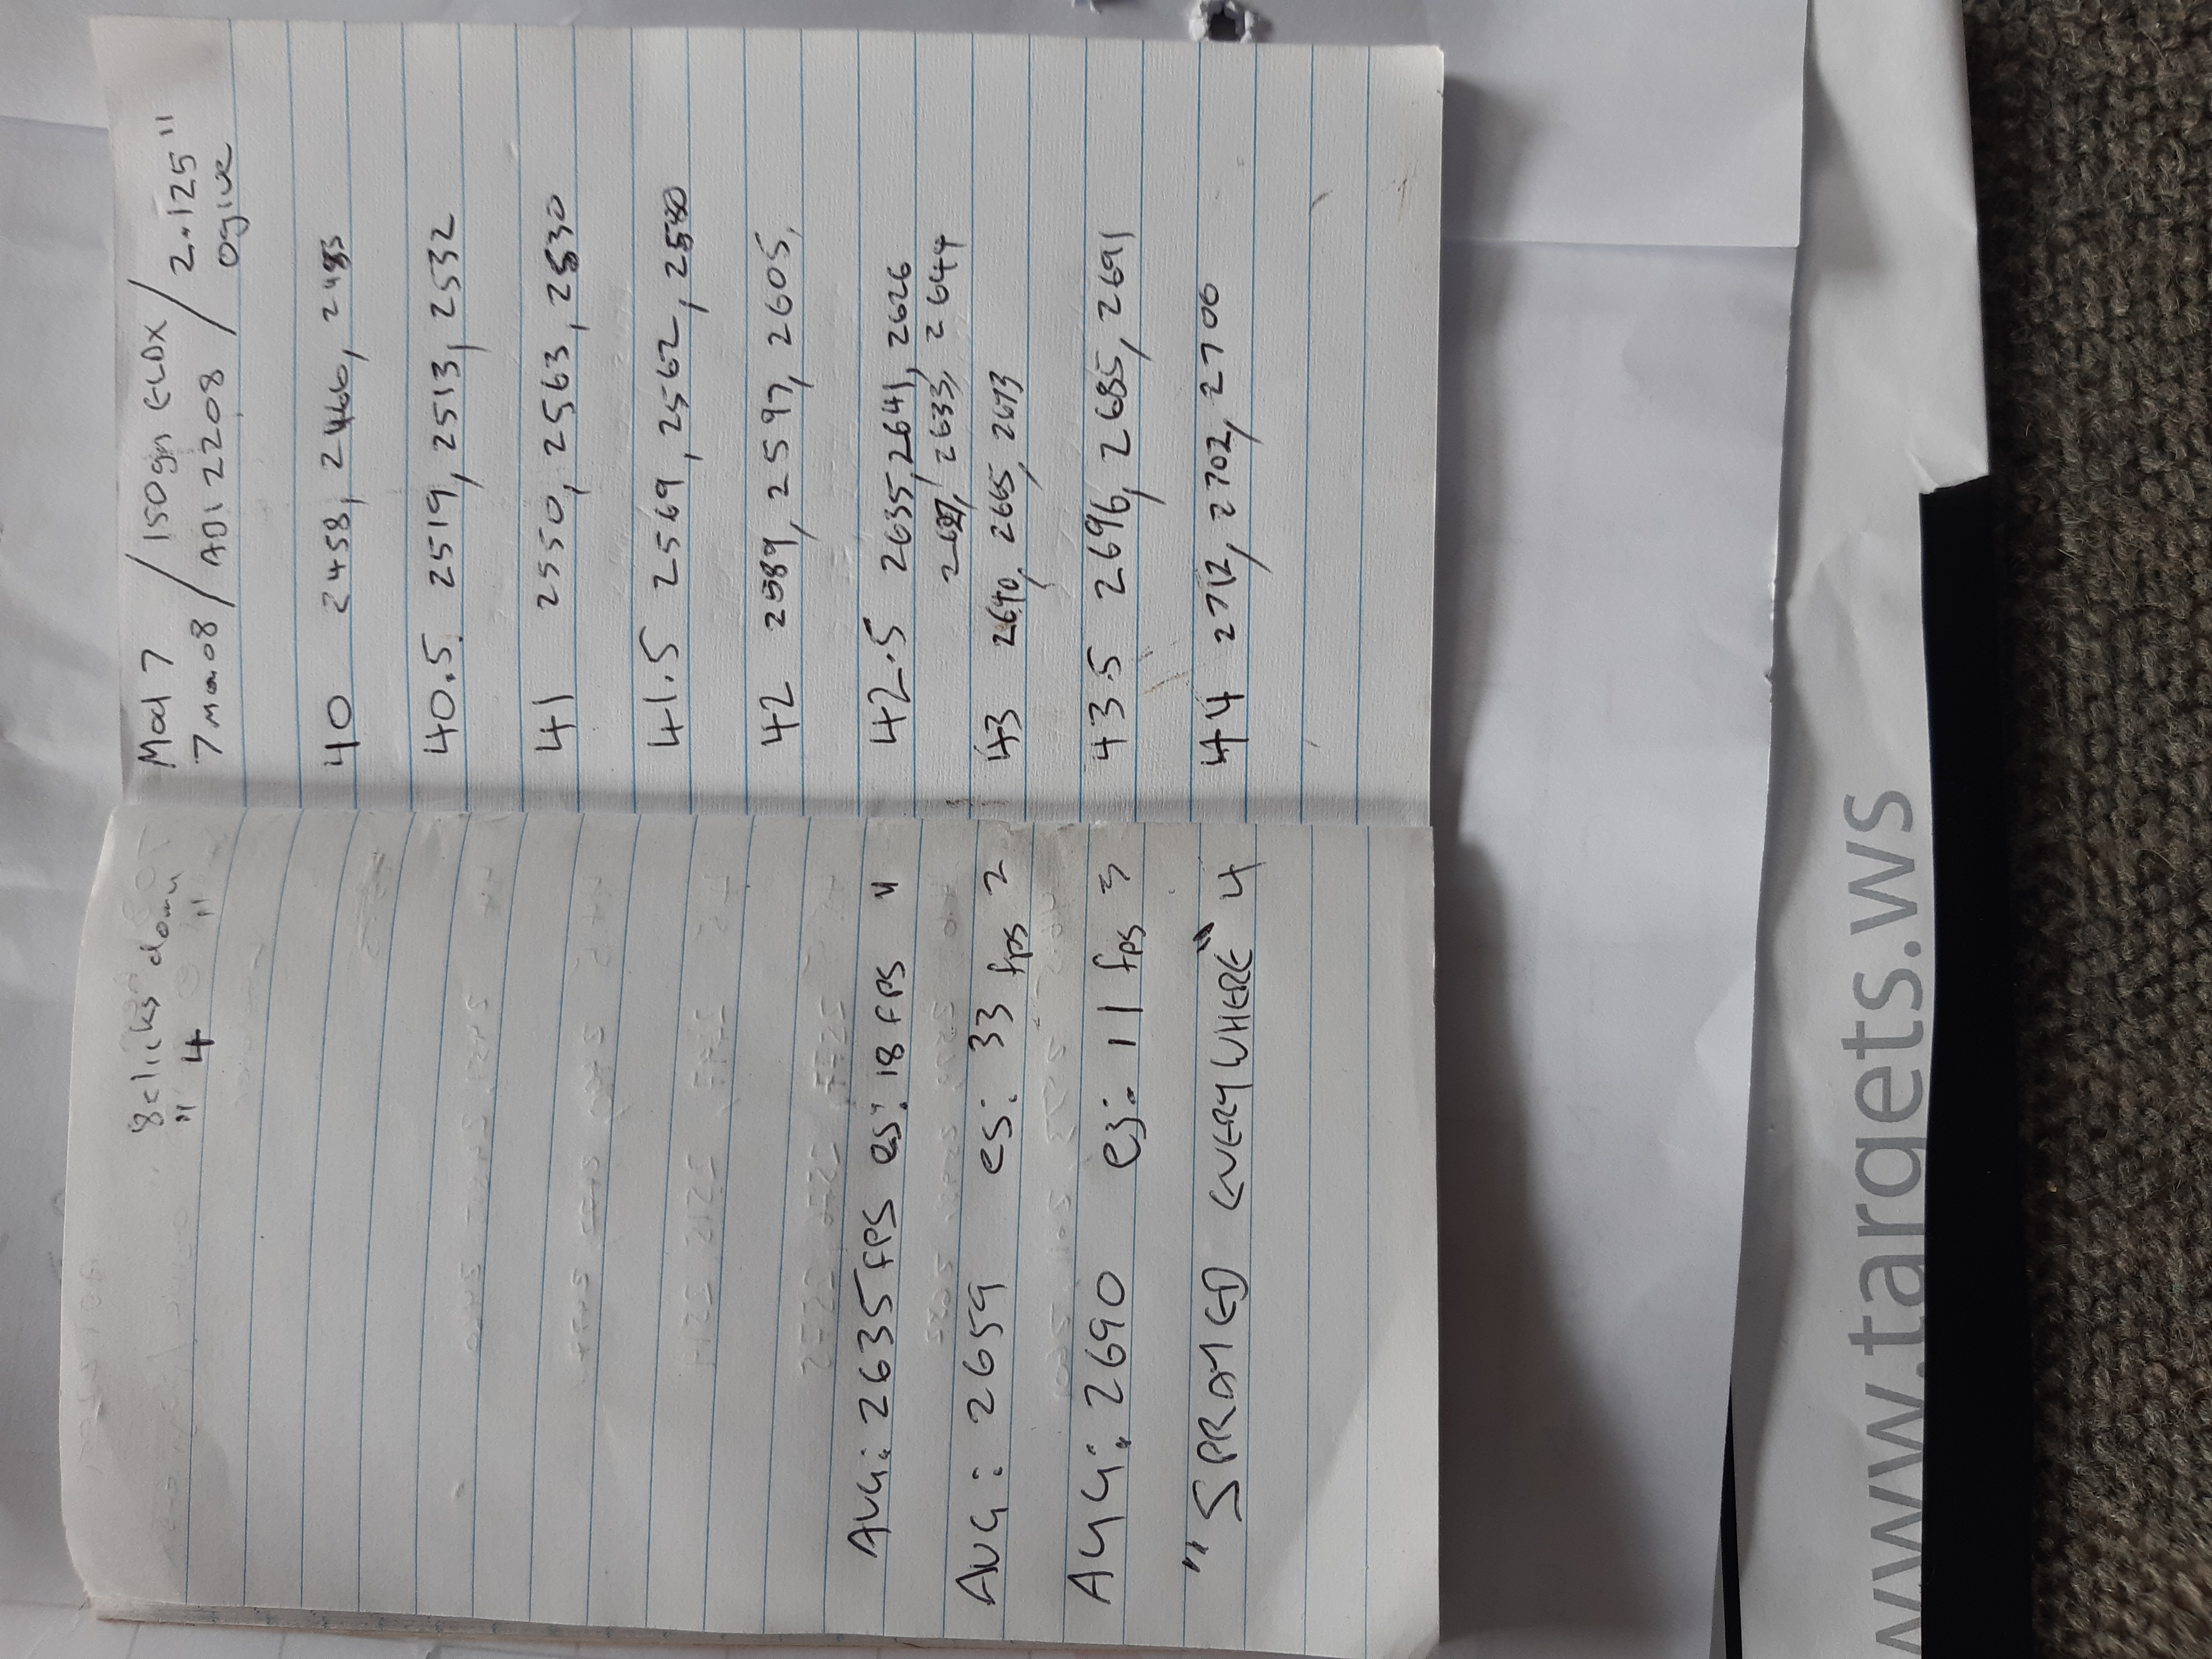 8 clicks down
" 4 "
AVG: 2635 FPS es: 18 FPS "
AVG: 2659 es: 33 fps 2
AVG: 2690 es: 11 fps 3
"SPRAYED EVERYWHERE" 4
Mod 7 / 150gn ELDX
7mm.08 / ADI 2208 / 2.125"
Ogive
40 2458, 2466, 2483
40.5. 2519, 2513, 2532
41 2550, 2563, 2530
41.5 2569, 2562, 2580
42 2589, 2597, 2605,
42.5 2635, 2641, 2626
2633, 2644
43 2640, 2665, 2673
43.5 2696, 2685, 2691
44 2712, 2702, 2700
www.targets.ws